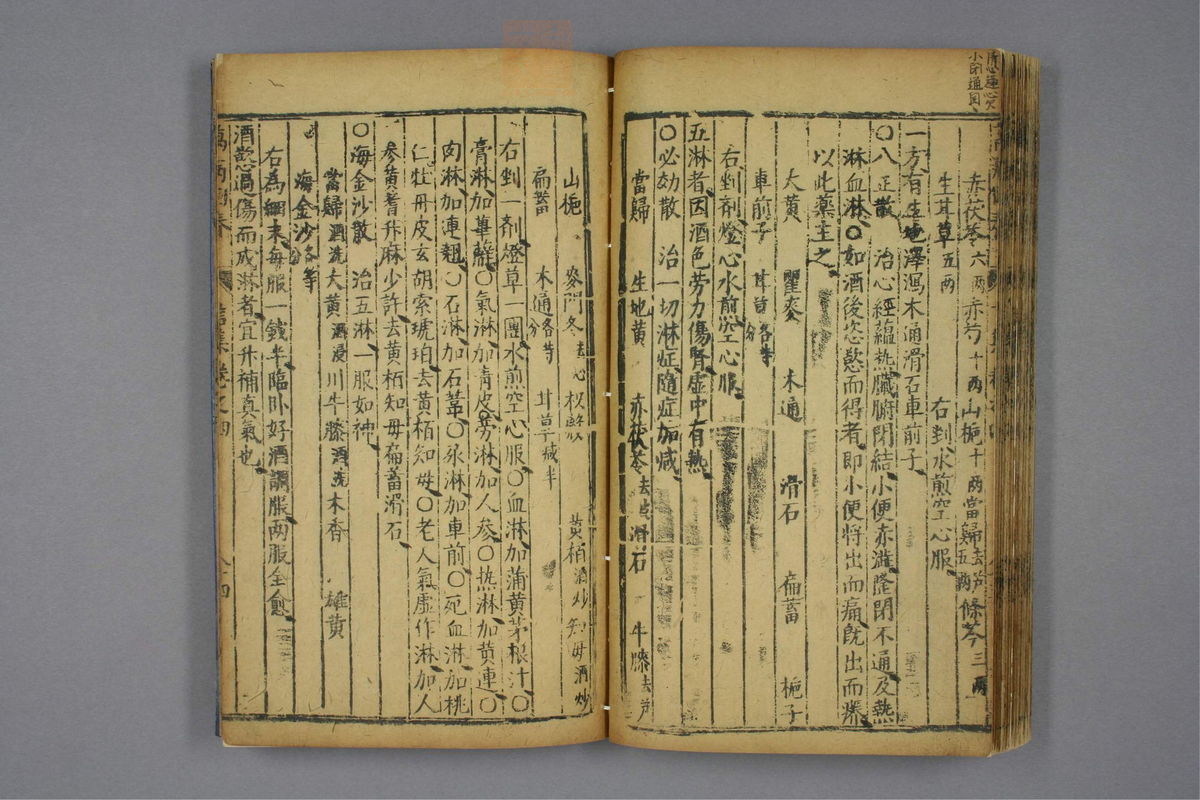 赤茯苓六两赤芍十两山梔十两當歸去芦五两條芩三两
生甘草五两 右剉水煎空心服
一方有生地澤瀉木通滑石車前子
〇八正散 治心經蘊热臟腑閉結小便赤澁癃閉不通及熱
淋血淋〇如酒後恣慾而得者即小便將出而痛既出而癢
以此藥主之
大黃 瞿麥 木通 滑石 萹蓄 梔子
車前子 甘草各等分
右剉剤燈心水煎空心服
五淋者因酒色劳力傷腎虛中有熱
〇必効散 治一切淋症隨症加减
當歸 生地黄 赤茯苓去皮滑石 牛膝去芦
山梔 麥門冬去心枳殼 黄栢酒炒知母酒炒
萹蓄 木通各等分 甘草减半
右剉一剤燈草一團水煎空心服〇血淋加蒲黄茅根汁〇
膏淋加萆薢〇氣淋加青皮〇劳淋加人參〇热淋加黄連〇
肉淋加連翹〇石淋加石葦〇尿淋加車前〇死血淋加桃
仁牡丹皮玄胡索琥珀去黄栢知母〇老人氣虛作淋加人
參黄蓍升麻少許去黄栢知母萹蓄滑石
〇海金沙散 治五淋一服如神
當歸酒洗大黄酒浸川牛膝酒洗木香 雄黄
海金沙各等分
右為細末每服一錢半臨卧好酒調服两服全愈
酒慾過傷而成淋者宜升補真氣也